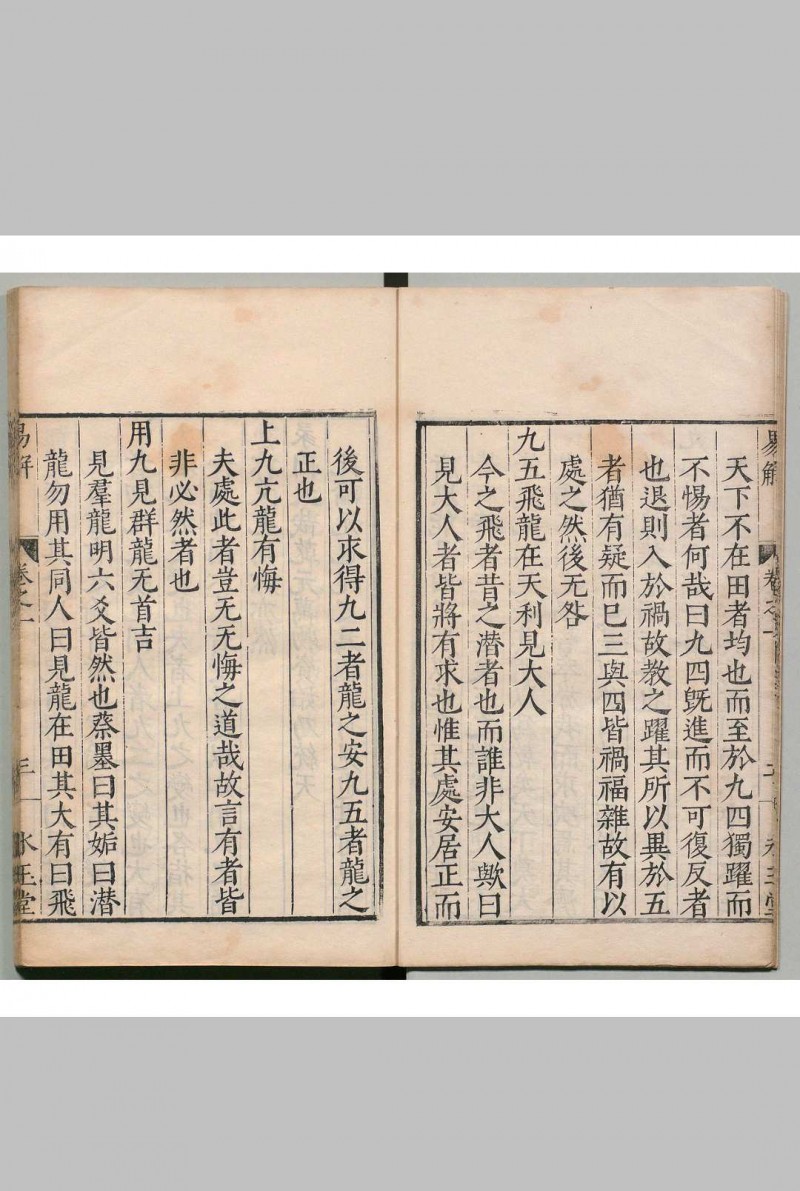 天下不在田者均也而至於九四獨躍而
不惕者何哉曰九四既進而不可復反者
也退則入於禍故教之躍其所以異於五
者猶有疑而已三與四皆禍福雜故有以
處之然後无咎
九五飛龍在天利見大人
今之飛者昔之潛者也而誰非大人歟曰
見大人者皆將有求也惟其處安居正而
後可以求得九二者龍之安九五者龍之
正也
上九亢龍有悔
夫處此者豈无无悔之道哉故言有者皆
非必然者也
用九見群龍无首吉
見羣龍明六爻皆然也蔡墨曰其姤曰潛
龍勿用其同人曰見龍在田其大有曰飛
易解
卷之一
三
冰玉堂